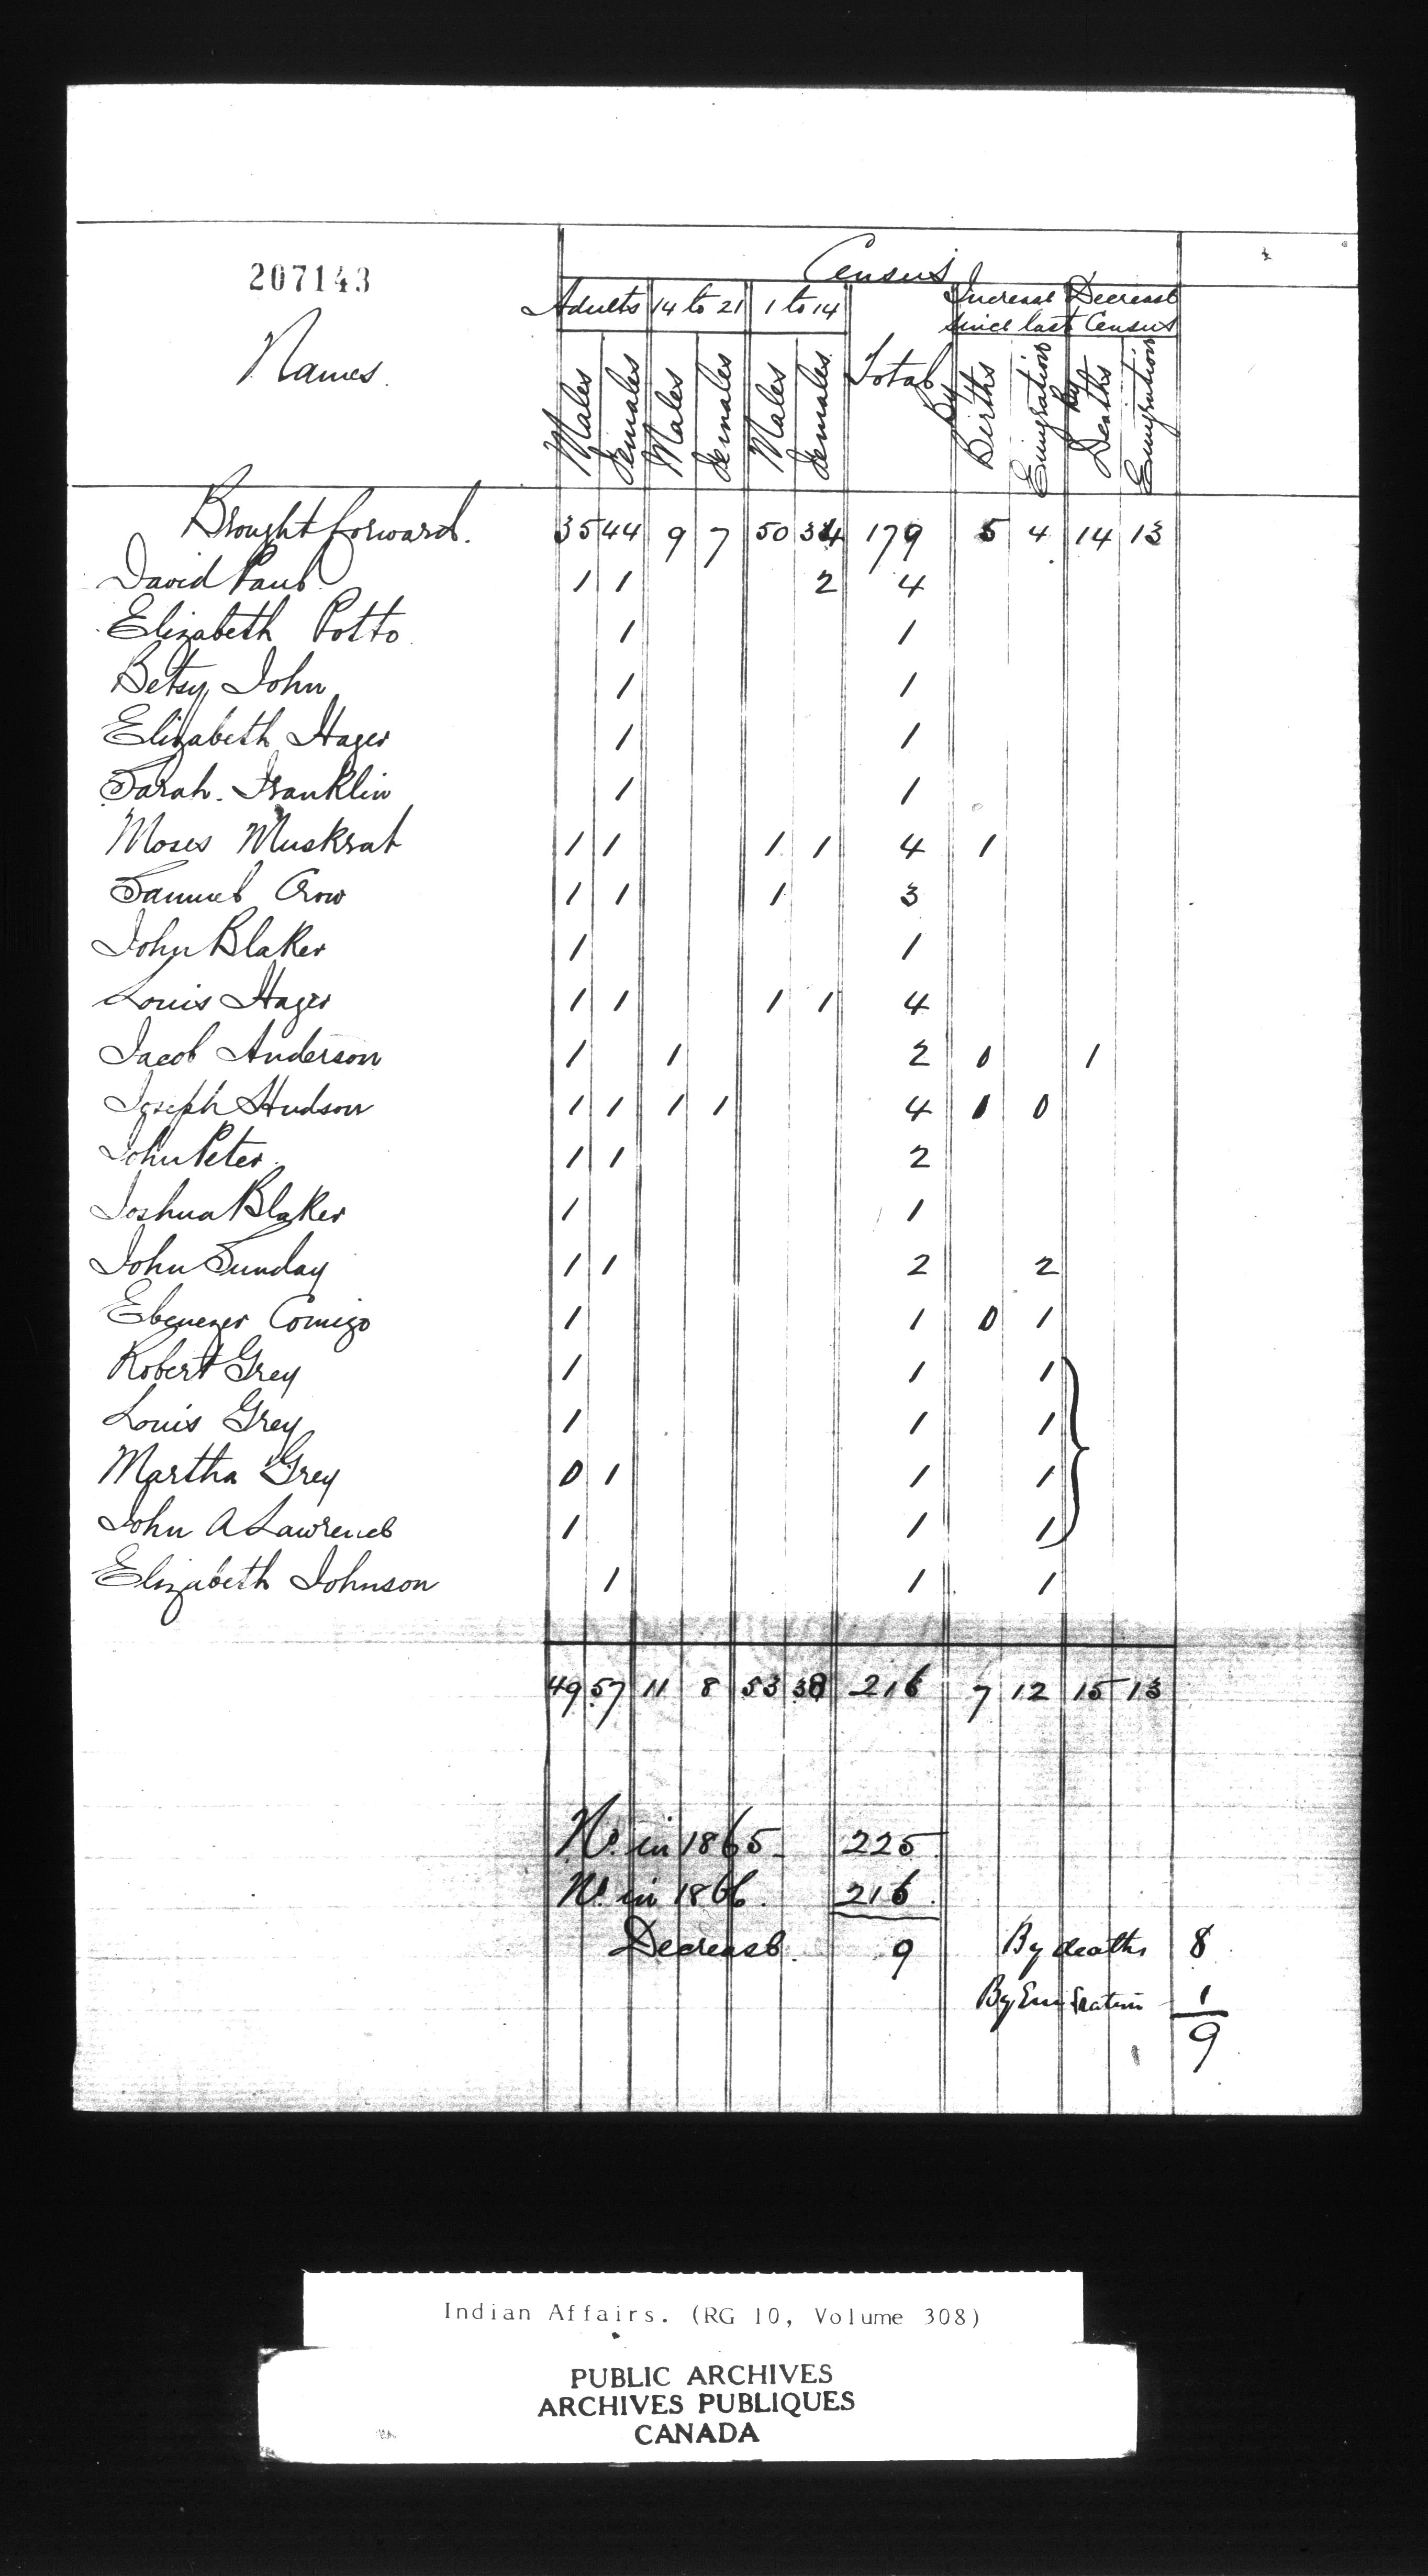 207143
Census
Adults 14 to 21 1 to 14 Increase Decrease
since last Census
Names. Total
Males Females Males Females Males Females By Births Emigration By Deaths Emigration
Brought forward. 35 44 9 7 50 34 179 5 4 14 13
David Paul 1 1 2 4
Elizabeth Potto 1 1
Betsy John 1 1
Elizabeth Hager 1 1
Sarah. Franklin 1 1
Moses Muskrat 1 1 1 1 4 1
Samuel Crow 1 1 1 3
John Blaker 1 1
Louis Hager 1 1 1 1 4
Jacob Anderson 1 1 2 0 1
Joseph Hudson 1 1 1 1 4 0
John Peter 1 1 2
Joshua Blaker 1 1
John Sunday 1 1 2 2
Ebenezer Comego 1 1 0 1
Robert Grey 1 1 1
Louis Grey 1 1 1
Martha Grey 0 1 1 1
John A Lawrence 1 1 1
Elizabeth Johnson 1 1 1
49 57 11 8 53 38 216 7 12 15 13
No. in 1865 225
No. in 1866. 216.
Decrease. 9 By deaths 8
By Emigration 1
9
Indian Affairs. (RG 10, Volume 308)
PUBLIC ARCHIVES
ARCHIVES PUBLIQUES
CANADA